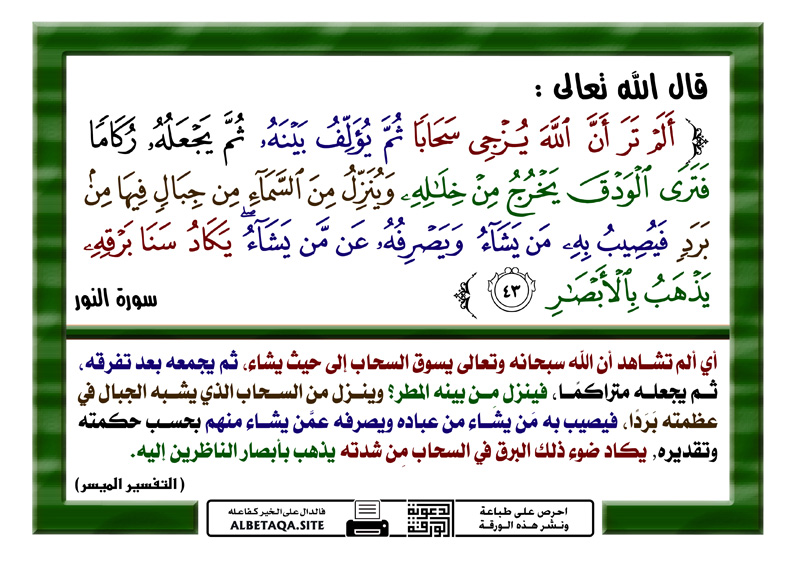 قال الله تعالى :
﴿ أَلَمْ تَرَ أَنَّ ٱللَّهَ يُزْجِى سَحَابًا ثُمَّ يُؤَلِّفُ بَيْنَهُۥ ثُمَّ يَجْعَلُهُۥ رُكَامًا
فَتَرَى ٱلْوَدْقَ يَخْرُجُ مِنْ خِلَٰلِهِۦ وَيُنَزِّلُ مِنَ ٱلسَّمَآءِ مِن جِبَالٍ فِيهَا مِنۢ
بَرَدٍ فَيُصِيبُ بِهِۦ مَن يَشَآءُ وَيَصْرِفُهُۥ عَن مَّن يَشَآءُ ۖ يَكَادُ سَنَا بَرْقِهِۦ
يَذْهَبُ بِٱلْأَبْصَٰرِ ٤٣ ﴾
سورة النور
أي ألم تشاهد أن الله سبحانه وتعالى يسوق السحاب إلى حيث يشاء، ثم يجمعه بعد تفرقه،
ثم يجعله متراكمًا، فينزل من بينه المطر؟ وينزل من السحاب الذي يشبه الجبال في
عظمته بَرَدًا، فيصيب به مَن يشاء من عباده ويصرفه عمَّن يشاء منهم بحسب حكمته
وتقديره, يكاد ضوء ذلك البرق في السحاب مِن شدته يذهب بأبصار الناظرين إليه.
(التفسير الميسر)
احرص على طباعة
ونشر هذه الورقة
الدعوية
الورقة
فالدال على الخير كفاعله
ALBETAQA.SITE